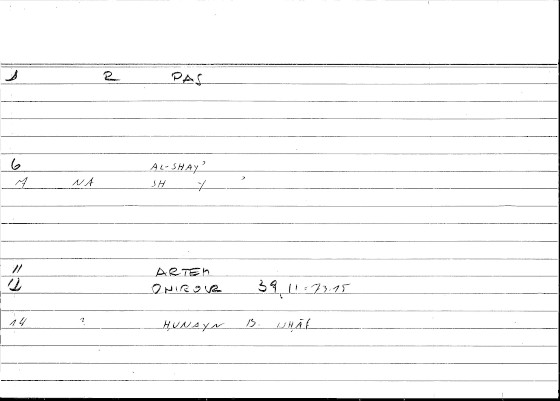 1 R PAS
6 AL-SHAY'
M NA SH Y '
11 ARTEM
12 ONIROCR 39, 11-73.15
14 ? ḤUNAYN B. ISḤĀḲ